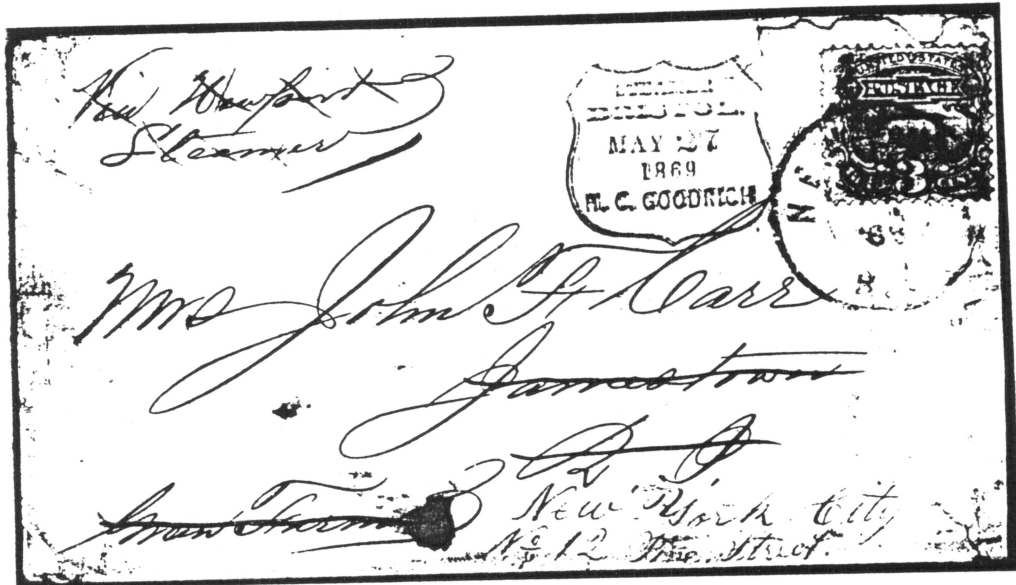 Via Newport
Steamer
STEAMER
BRISTOL.
MAY 27
1869
H. C. GOODRICH
UNITED STATES
POSTAGE
3
NE
Mrs John F Carr
Jamestown
R I
New York City
No 12 Street